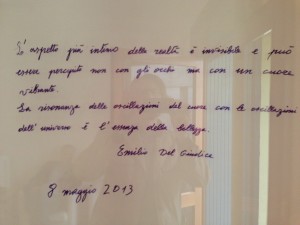 L'aspetto più intimo della realtà è invisibile e può
essere percepito non con gli occhi ma con un cuore
vibrante.
La risonanza delle oscillazioni del cuore con le oscillazioni
dell'universo è l'essenza della bellezza.
Emilio Del Giudice
8 maggio 2013